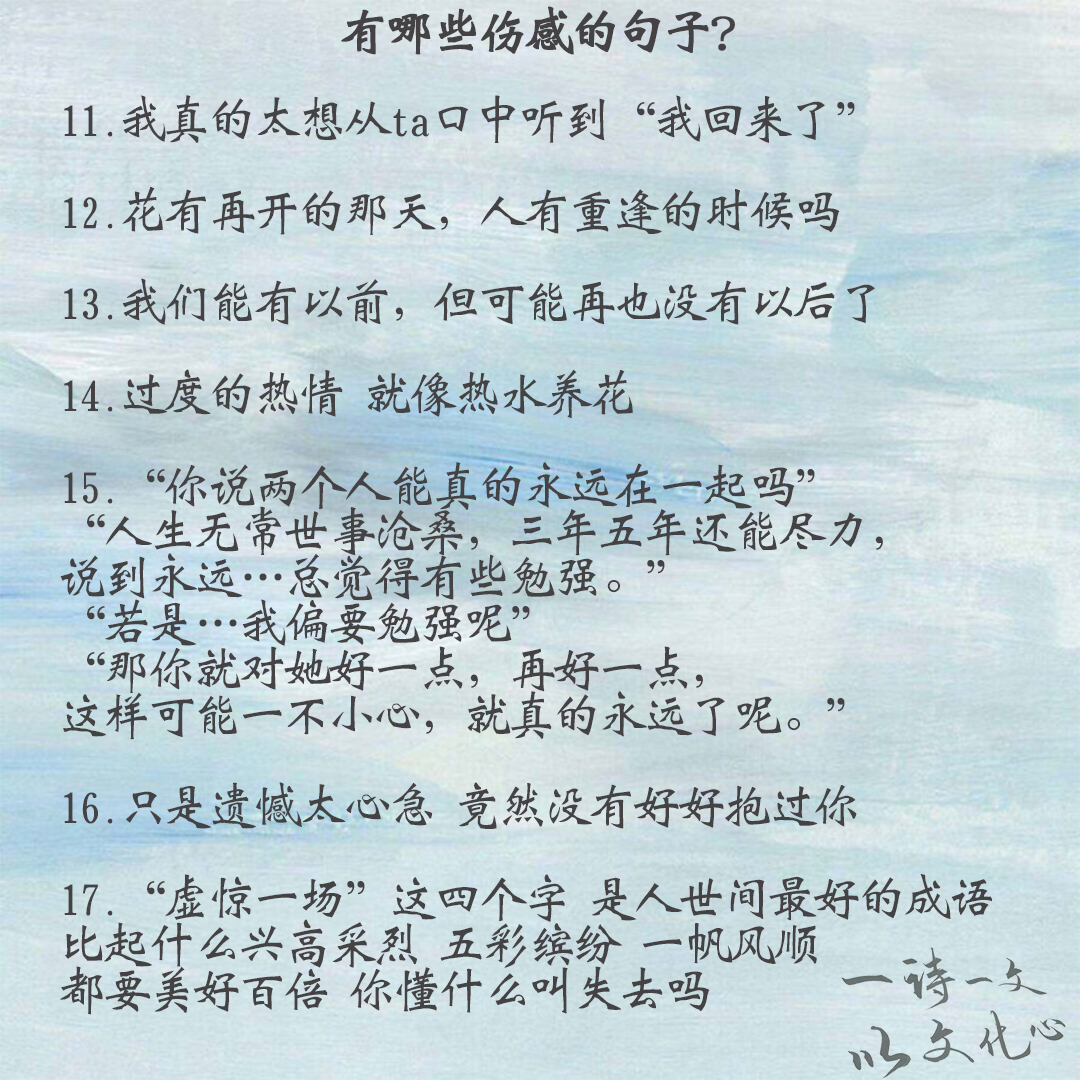 有哪些伤感的句子?
11.我真的太想从ta口中听到“我回来了”
12.花有再开的那天，人有重逢的时候吗
13.我们能有以前，但可能再也没有以后了
14.过度的热情 就像热水养花
15.“你说两个人能真的永远在一起吗”
“人生无常世事沧桑，三年五年还能尽力，
说到永远…总觉得有些勉强。”
“若是…我偏要勉强呢”
“那你就对她好一点，再好一点，
这样可能一不小心，就真的永远了呢。”
16.只是遗憾太心急 竟然没有好好抱过你
17.“虚惊一场”这四个字 是人世间最好的成语
比起什么兴高采烈 五彩缤纷 一帆风顺
都要美好百倍 你懂什么叫失去吗
一诗一文
以文化心